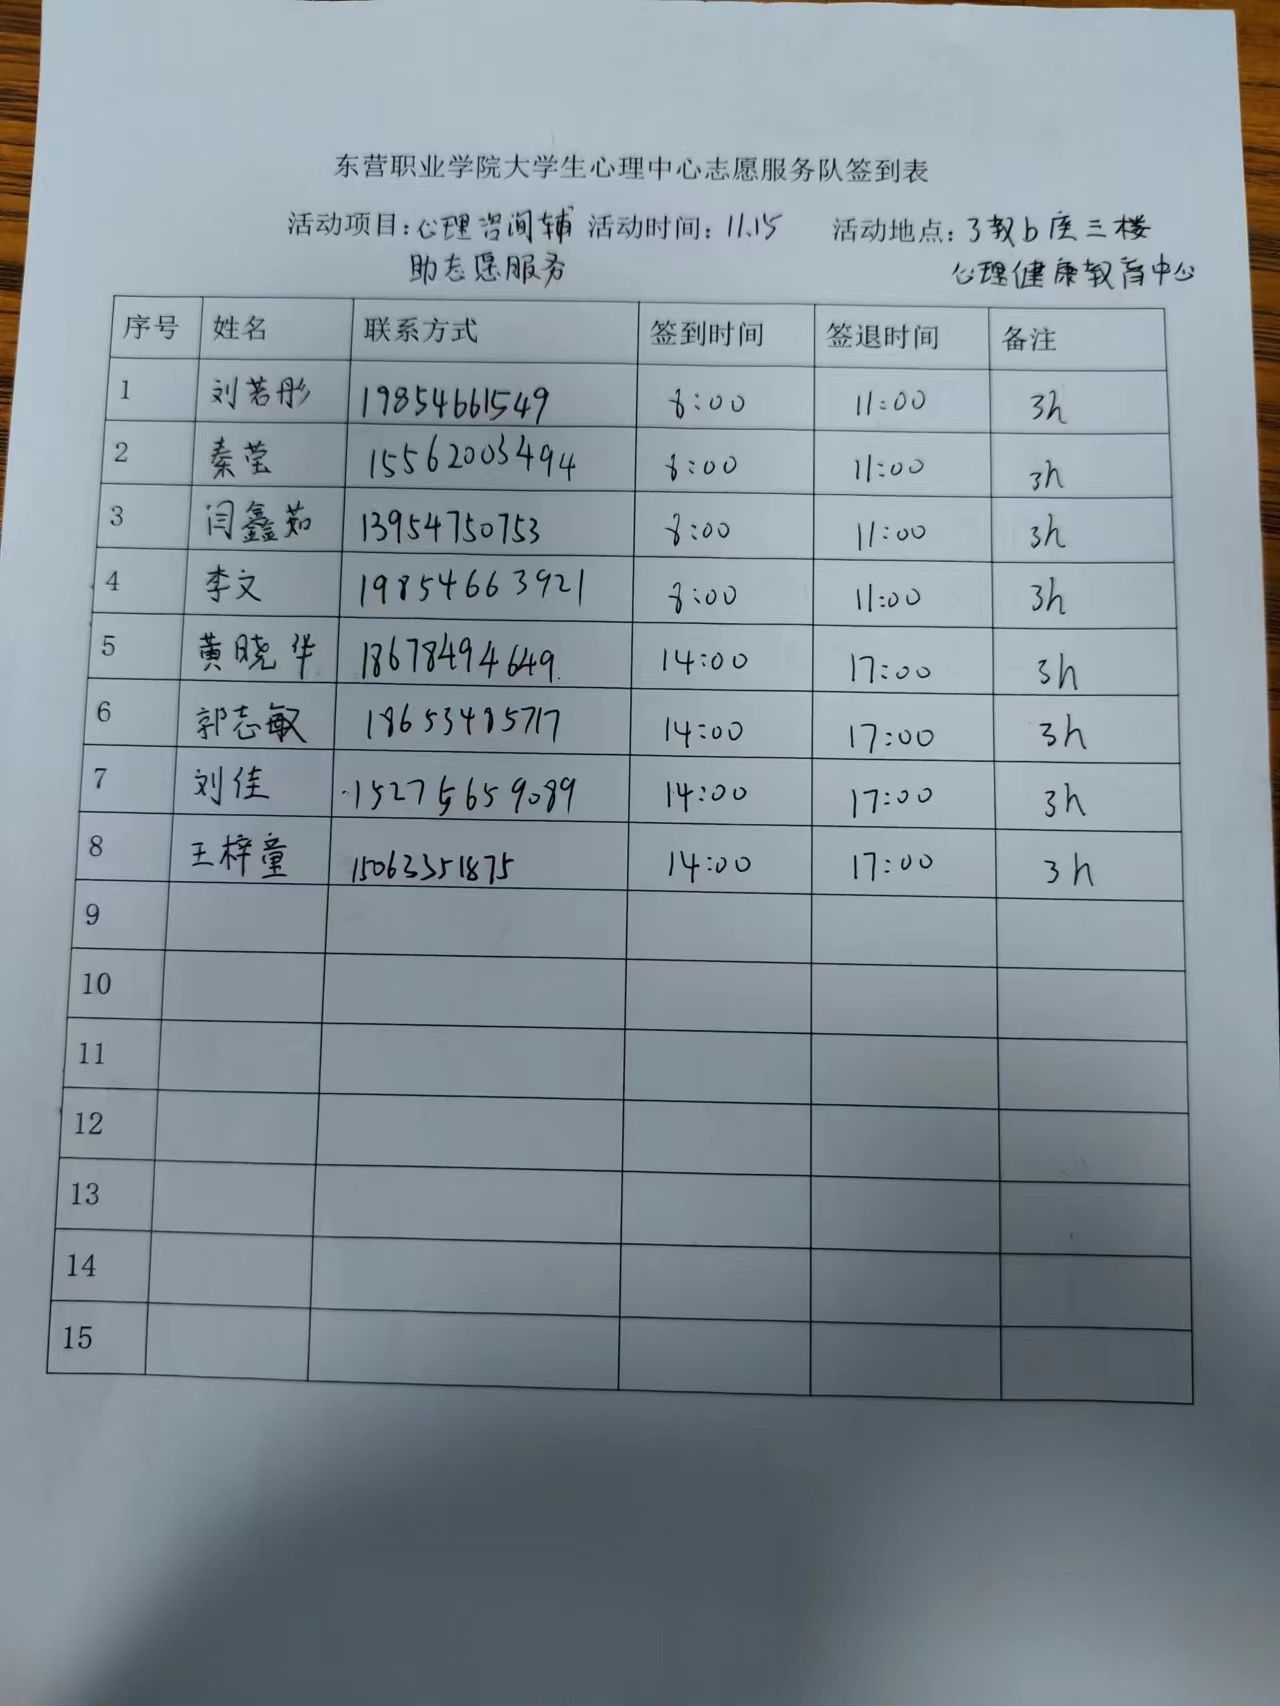 东营职业学院大学生心理中心志愿服务队签到表
活动项目：心理咨间辅 活动时间：11.15 活动地点：3教b座三楼
助志愿服务 心理健康教育中心
序号 姓名 联系方式 签到时间 签退时间 备注
1 刘若彤 19854661549 8:00 11:00 3h
2 秦莹 15562003494 8:00 11:00 3h
3 闫鑫茹 13954750753 8:00 11:00 3h
4 李文 19854663921 8:00 11:00 3h
5 黄晓华 18678494649 14:00 17:00 3h
6 郭志敏 18653485717 14:00 17:00 3h
7 刘佳 15275659089 14:00 17:00 3h
8 王梓童 15063351875 14:00 17:00 3h
9
10
11
12
13
14
15